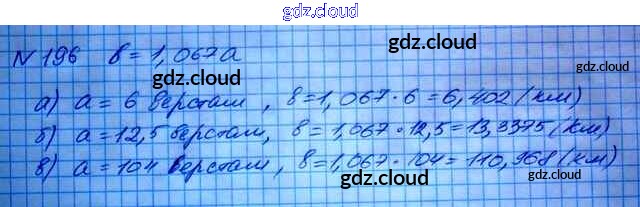 gdz.cloud
№ 196 в = 1,067а
gdz.cloud
gdz.cloud
а) а = 6 верстам, в = 1,067 · 6 = 6,402 (км)
gdz.cloud
б) а = 12,5 верстам, в = 1,067 · 12,5 = 13,3375 (км)
gdz.cloud
в) а = 104 верстам, в = 1,067 · 104 = 110,968 (км)
gdz.cloud
gdz.cloud